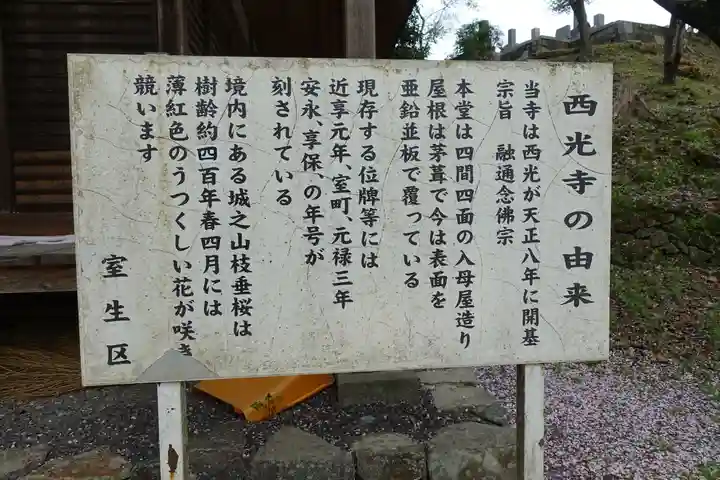 西光寺の由来
当寺は西光が天正八年に開基
宗旨　融通念佛宗
本堂は四間四面の入母屋造り
屋根は茅葺で今は表面を
亜鉛並板で覆っている
現存する位牌等には
近享元年、室町、元禄三年
安永、享保、の年号が
刻されている
境内にある城之山枝垂桜は
樹齢約四百年春四月には
薄紅色のうつくしい花が咲き
競います
室生区